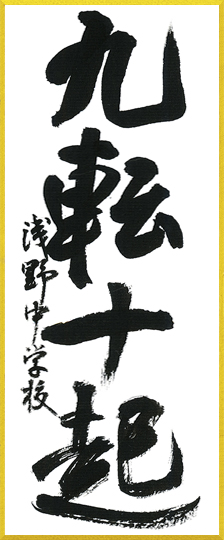 九転十起
浅野中学校